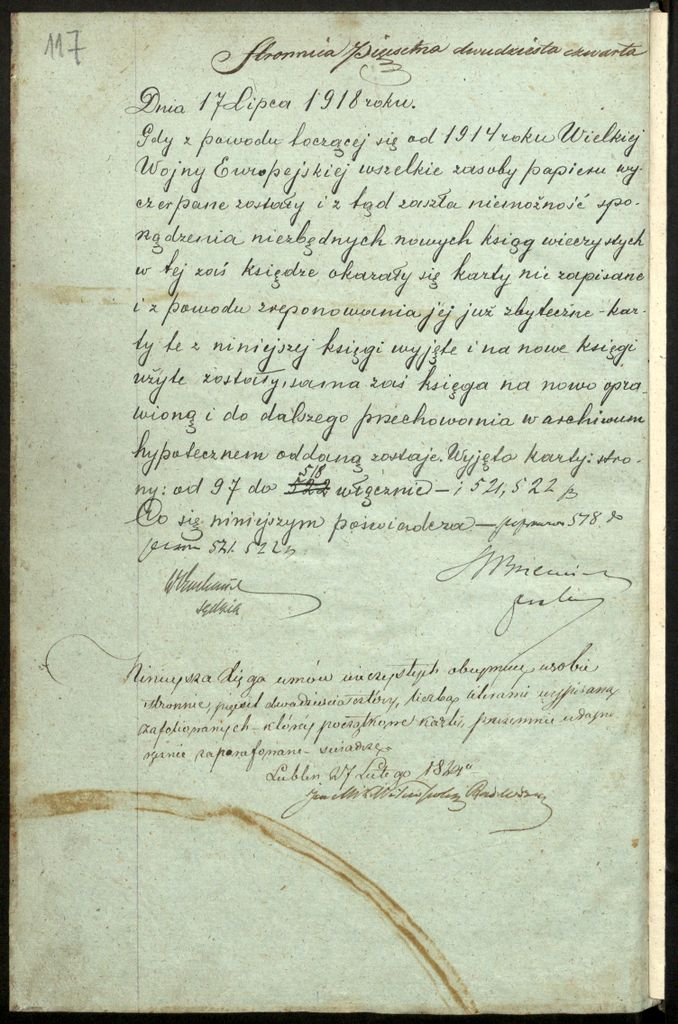 117
Stronnica Pięsetna dwudziesta czwarta
Dnia 17 Lipca 1918 roku.
Gdy z powodu toczącej się od 1914 roku Wielkiej
Wojny Europejskiej wszelkie zasoby papieru wy-
czerpane zostały i z tąd zaszła niemożność spo-
rządzenia niezbędnych nowych ksiąg wieczystych
w tej zaś księdze okazały się karty nie zapisane
i z powodu zreponowania jej już zbyteczne - kar-
ty te z niniejszej księgi wyjęte i na nowe księgi
użyte zostały, sama zaś księga na nowo opra-
wioną i do dalszego przechowania w archiwum
hypotecznem oddaną zostaje. Wyjęto karty: stro-
518
ny: od 97 do 522 włącznie - i 521, 522
Co się niniejszym poświadcza - 518.
521. 522
sędzia
Niniejsza Xięga umów wieczystych obejmuje w sobie
stronnic pięćset dwadzieścia cztery, liczbą literami wypisaną
zafoliowanych - której początkowe karty, przezemnie własno
ręcznie zaparafowane - świadczę
Lublin 27 Lutego